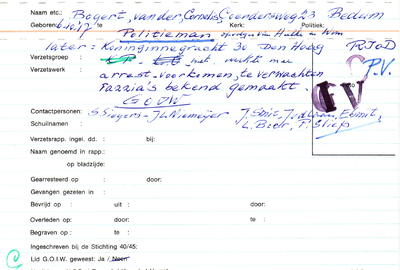 Naam etc.: Bogert, van der, Cornelis, Coendersweg 23 Bedum
Geboren: 6-10-17 te Kerk: Politiek:
Politieman opvolger van Hulle in Nrm
later = Koninginnegracht 30 Den Haag RIOD
Verzetsgroep : KP - met
Verzetswerk : arrest. voorkomen, te verwachten P.V.
razzia's bekend gemaakt.
G.O.I.W
Contactpersonen: S. Siegers - J.L. Niemeijer J. Smit,
Schuilnamen : L. Bech, F. Sliep
Verzetsrapp. ingel. dd. : bij:
Naam genoemd in rapp.:
op bladzijde:
Gearresteerd op : door:
Gevangen gezeten in :
Bevrijd op : uit : door:
Overleden op : door: te :
Begraven op : te :
Ingeschreven bij de Stichting 40/45:
Lid G.O.I.W. geweest: Ja / Neen